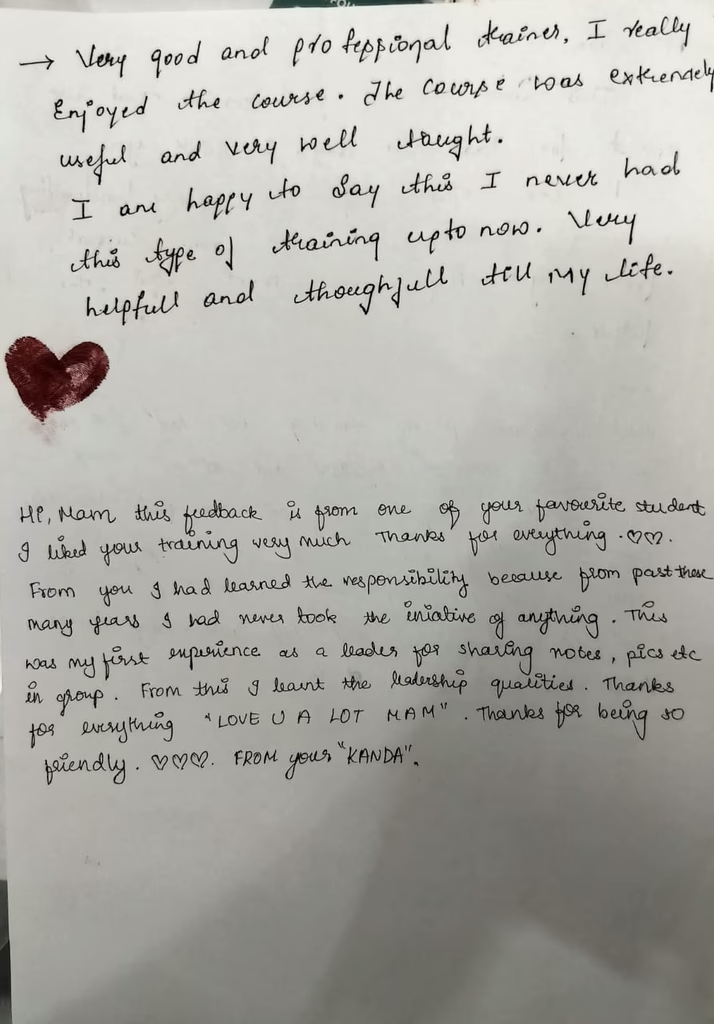 → Very good and professional trainer, I really
Enjoyed the course. The course was extremely
useful and very well taught.
I am happy to say this I never had
this type of training upto now. Very
helpfull and thoughfull till my life.
Hi, Mam this feedback is from one of your favourite student
I liked your training very much Thanks for everything . ♡♡.
From you I had learned the responsibility because from past these
many years I had never took the iniative of anything. This
was my first experience as a leader for sharing notes, pics etc
in group. From this I learnt the leadership qualities. Thanks
for everything "LOVE U A LOT MAM". Thanks for being so
friendly. ♡♡♡. FROM your "KANDA".